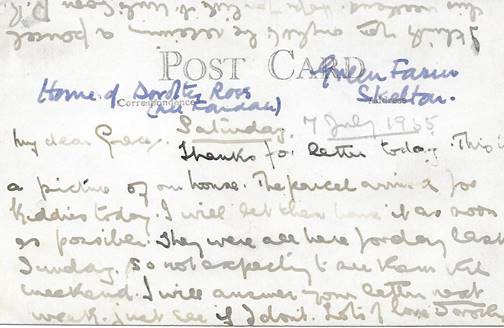 POST CARD
Home of Dorothy Ross
(née Fandau)
Green Farm
Skelton.
Correspondence
Address
Saturday. 7 July 1955
My dear Grace,
Thanks for letter today. This is
a picture of our house. The parcel arrived for
Kiddies today. I will let them have it as soon
as possible. They were all here for day last
Sunday. So not expecting to see them this
weekend. I will answer your letter next
week. just see if I don't. Lots of love Dorothy